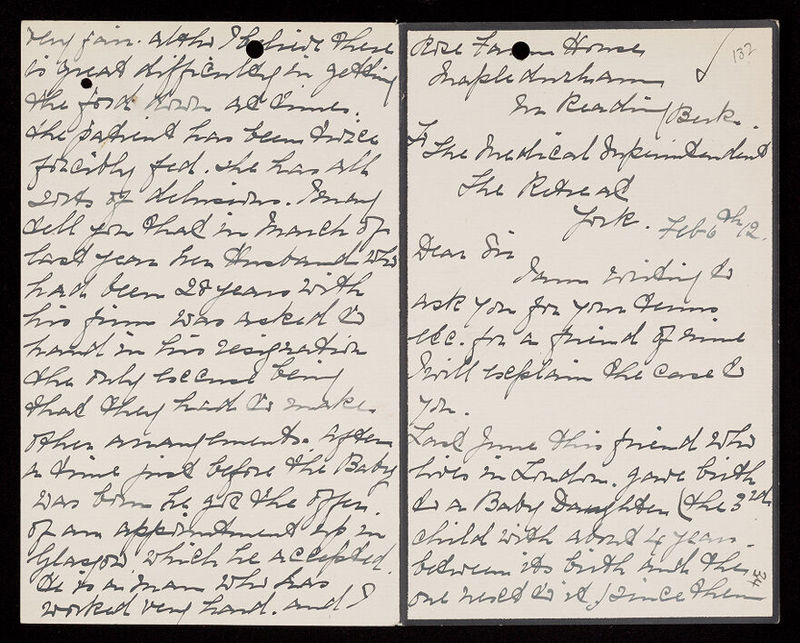 very fair. altho I believe there
is great difficulty in getting
the food down at times.
the patient has been twice
forcibly fed. she has all
sorts of delusions. I may
tell you that in March of
last year her Husband who
had been 28 years with
his firm was asked to
hand in his resignation
the only excuse being
that they had to make
other arrangements. after
a time just before the Baby
was born he got the offer
of an appointment up in
Glasgow which he accepted.
He is a man who has
worked very hard. and I
132
Rose Farm House
Mapledurham
Nr Reading Berks.
To The Medical Superintendent
The Retreat
York. Feb 6th /12.
Dear Sir
I am writing to
ask you for your terms
etc. for a friend of mine
I will explain the case to
you.
Last June this friend who
lives in London. gave birth
to a Baby Daughter (the 3rd
child with about 4 years
between its birth and the
one next to it) since then
34